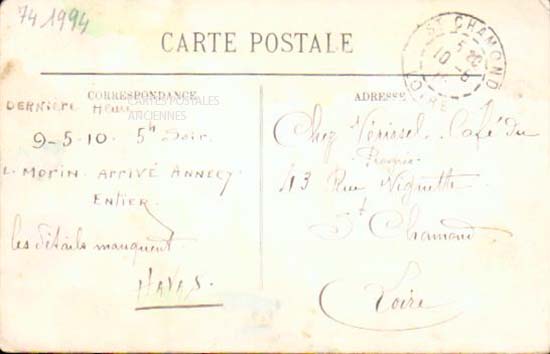 74 1994
CARTE POSTALE
ST CHAMOND
5 20
10 - 5
LOIRE
CORRESPONDANCE
CARTES POSTALES
ANCIENNES
ADRESSE
DERNIÈRE HEURE
9-5-10. 5h Soir.
L. MORIN. ARRIVÉ ANNECY
ENTIER.
les détails manquent
HAVAS.
Chez Café du
43 Rue
St Chamond
Loire